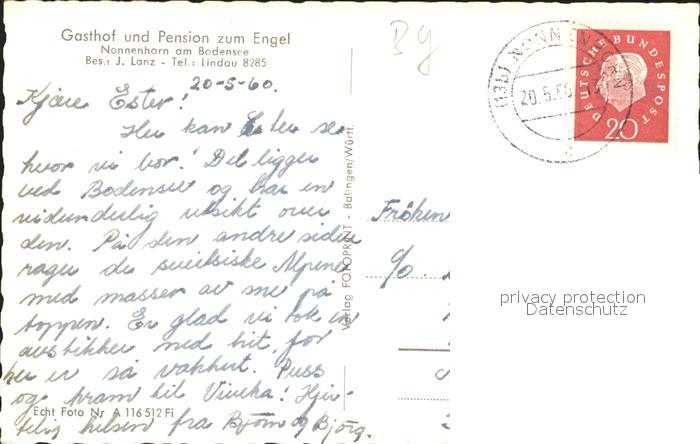 Gasthof und Pension zum Engel
Nonnenhorn am Bodensee
Bes.: J. Lanz - Tel.: Lindau 8285
20-5-60.
Kjære Ester!
Her kan du se
hvor vi bor! Det ligger
ved Bodensee og har en
vidunderlig utsikt over
den. På den andre siden
rager de sveitsiske Alpene
med masser av snø på
toppen. Er glad vi tok en
avstikker ned hit, for
her er så vakkert. Puss
og fram til Viveka! Hjer-
telig hilsen fra Bjørn og Bjørg.
Echt Foto Nr. A 116512 Fi
Verlag FOTOPRINT - Balingen/Württ.
By
(13b) NONNENHORN
20.5.60
DEUTSCHE BUNDESPOST
20
Frøken
c/o.
privacy protection
Datenschutz